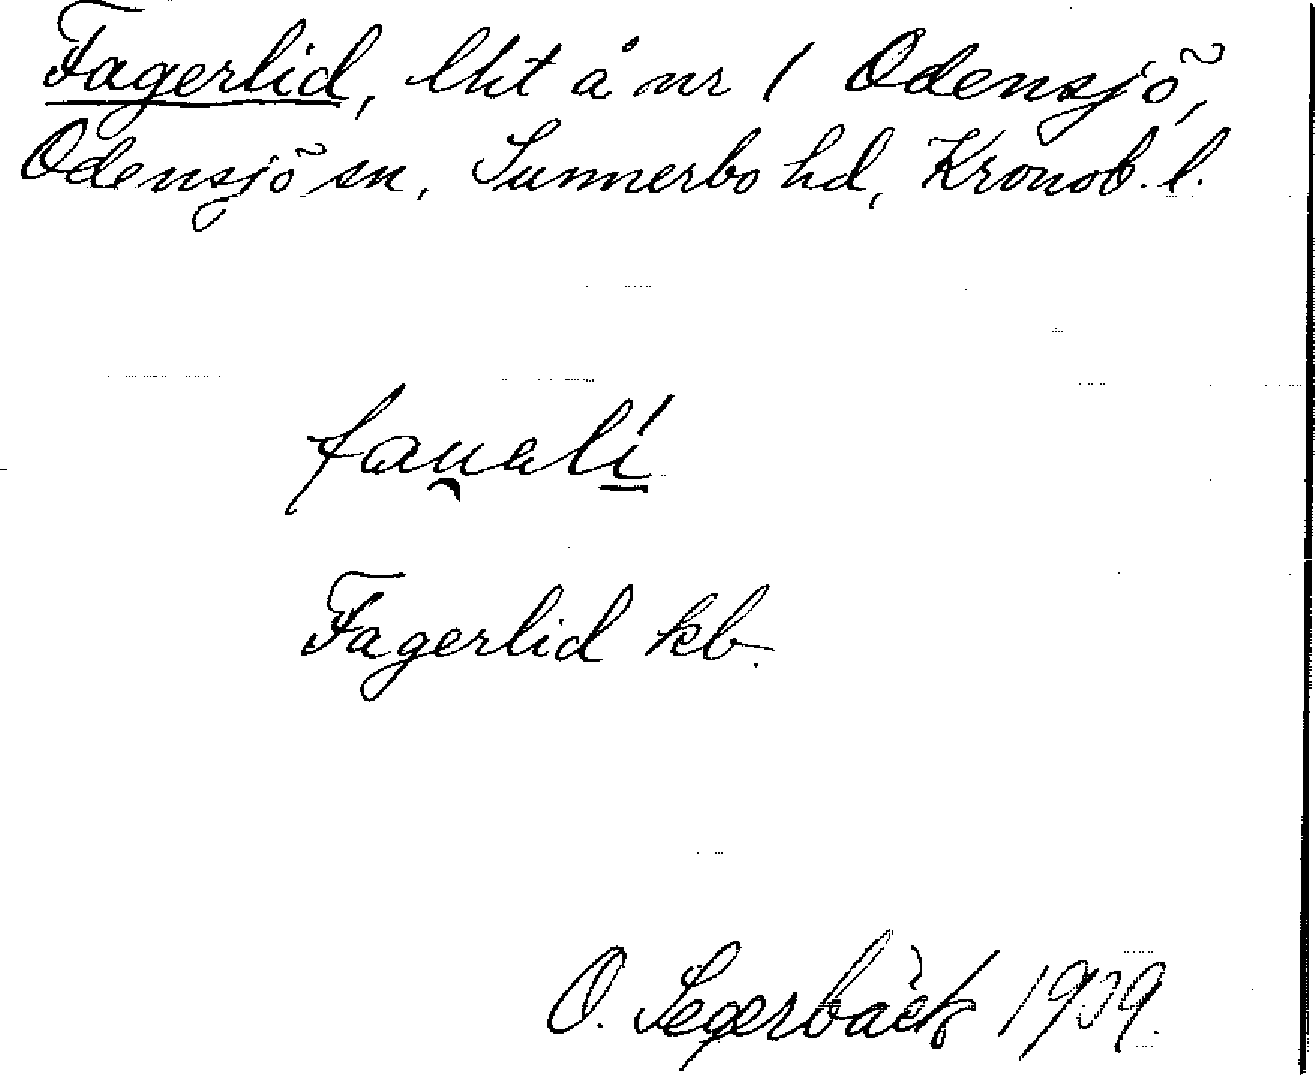 Fagerlid, lht å nr 1 Odensjö,
Odensjö sn, Sunnerbo hd, Kronob. l.
fau̯alí
Fagerlid kb.
O. Segerbäck 1939.